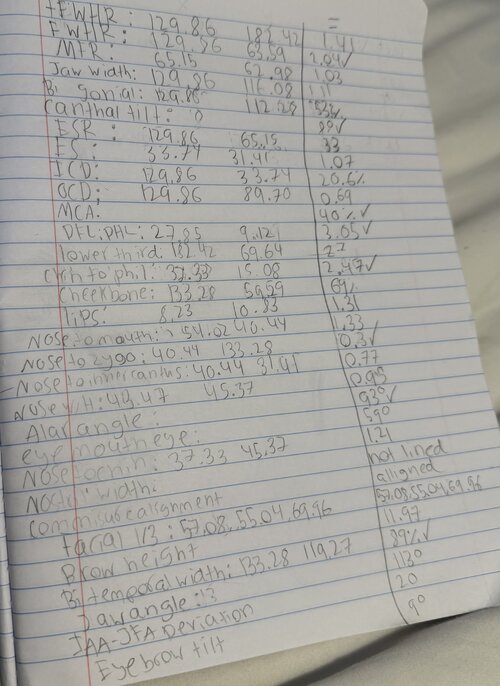 tFWHR: 129.86 182.42 = 1.41
FWHR: 129.86 63.59 2.04✓
MFR: 65.15 62.98 1.03
Jaw width: 129.86 116.08 1.11
Bi gonial: 129.86 112.28
canthal tilt: 88✓
ESR: 129.86 65.15
ES: 33.74 31.41 1.07
ICD: 129.86 33.74
OCD: 129.86 89.70 0.69
MCA: 40%✓
DFL:PHL: 27.85 9.121 3.05✓
lower third: 182.42 69.64
chin to phil: 37.33 15.08 2.47✓
Cheekbone: 133.28 59.59
lips: 8.23 10.83 1.31
Nose to mouth: 54.02 40.44 1.33
Nose to zygo: 40.44 133.28 0.3✓
Nose to inner cantus: 40.44 31.41 0.77
Nose W:H: 43.47 45.37 0.95
Alar angle: 93°✓
eye mouth eye: 59°
Nose to chin: 37.33 45.37 1.21
Nostril width: not lined
Commisure alignment alligned
Facial 1/3: 57.08, 55.04, 69.96 57.08, 55.04, 69.96
Brow height 11.97
Bitemporal width: 133.28 119.27 89%✓
Jaw angle: 13 113°
JAA-JFA Deviation 20
Eyebrow tilt 9°